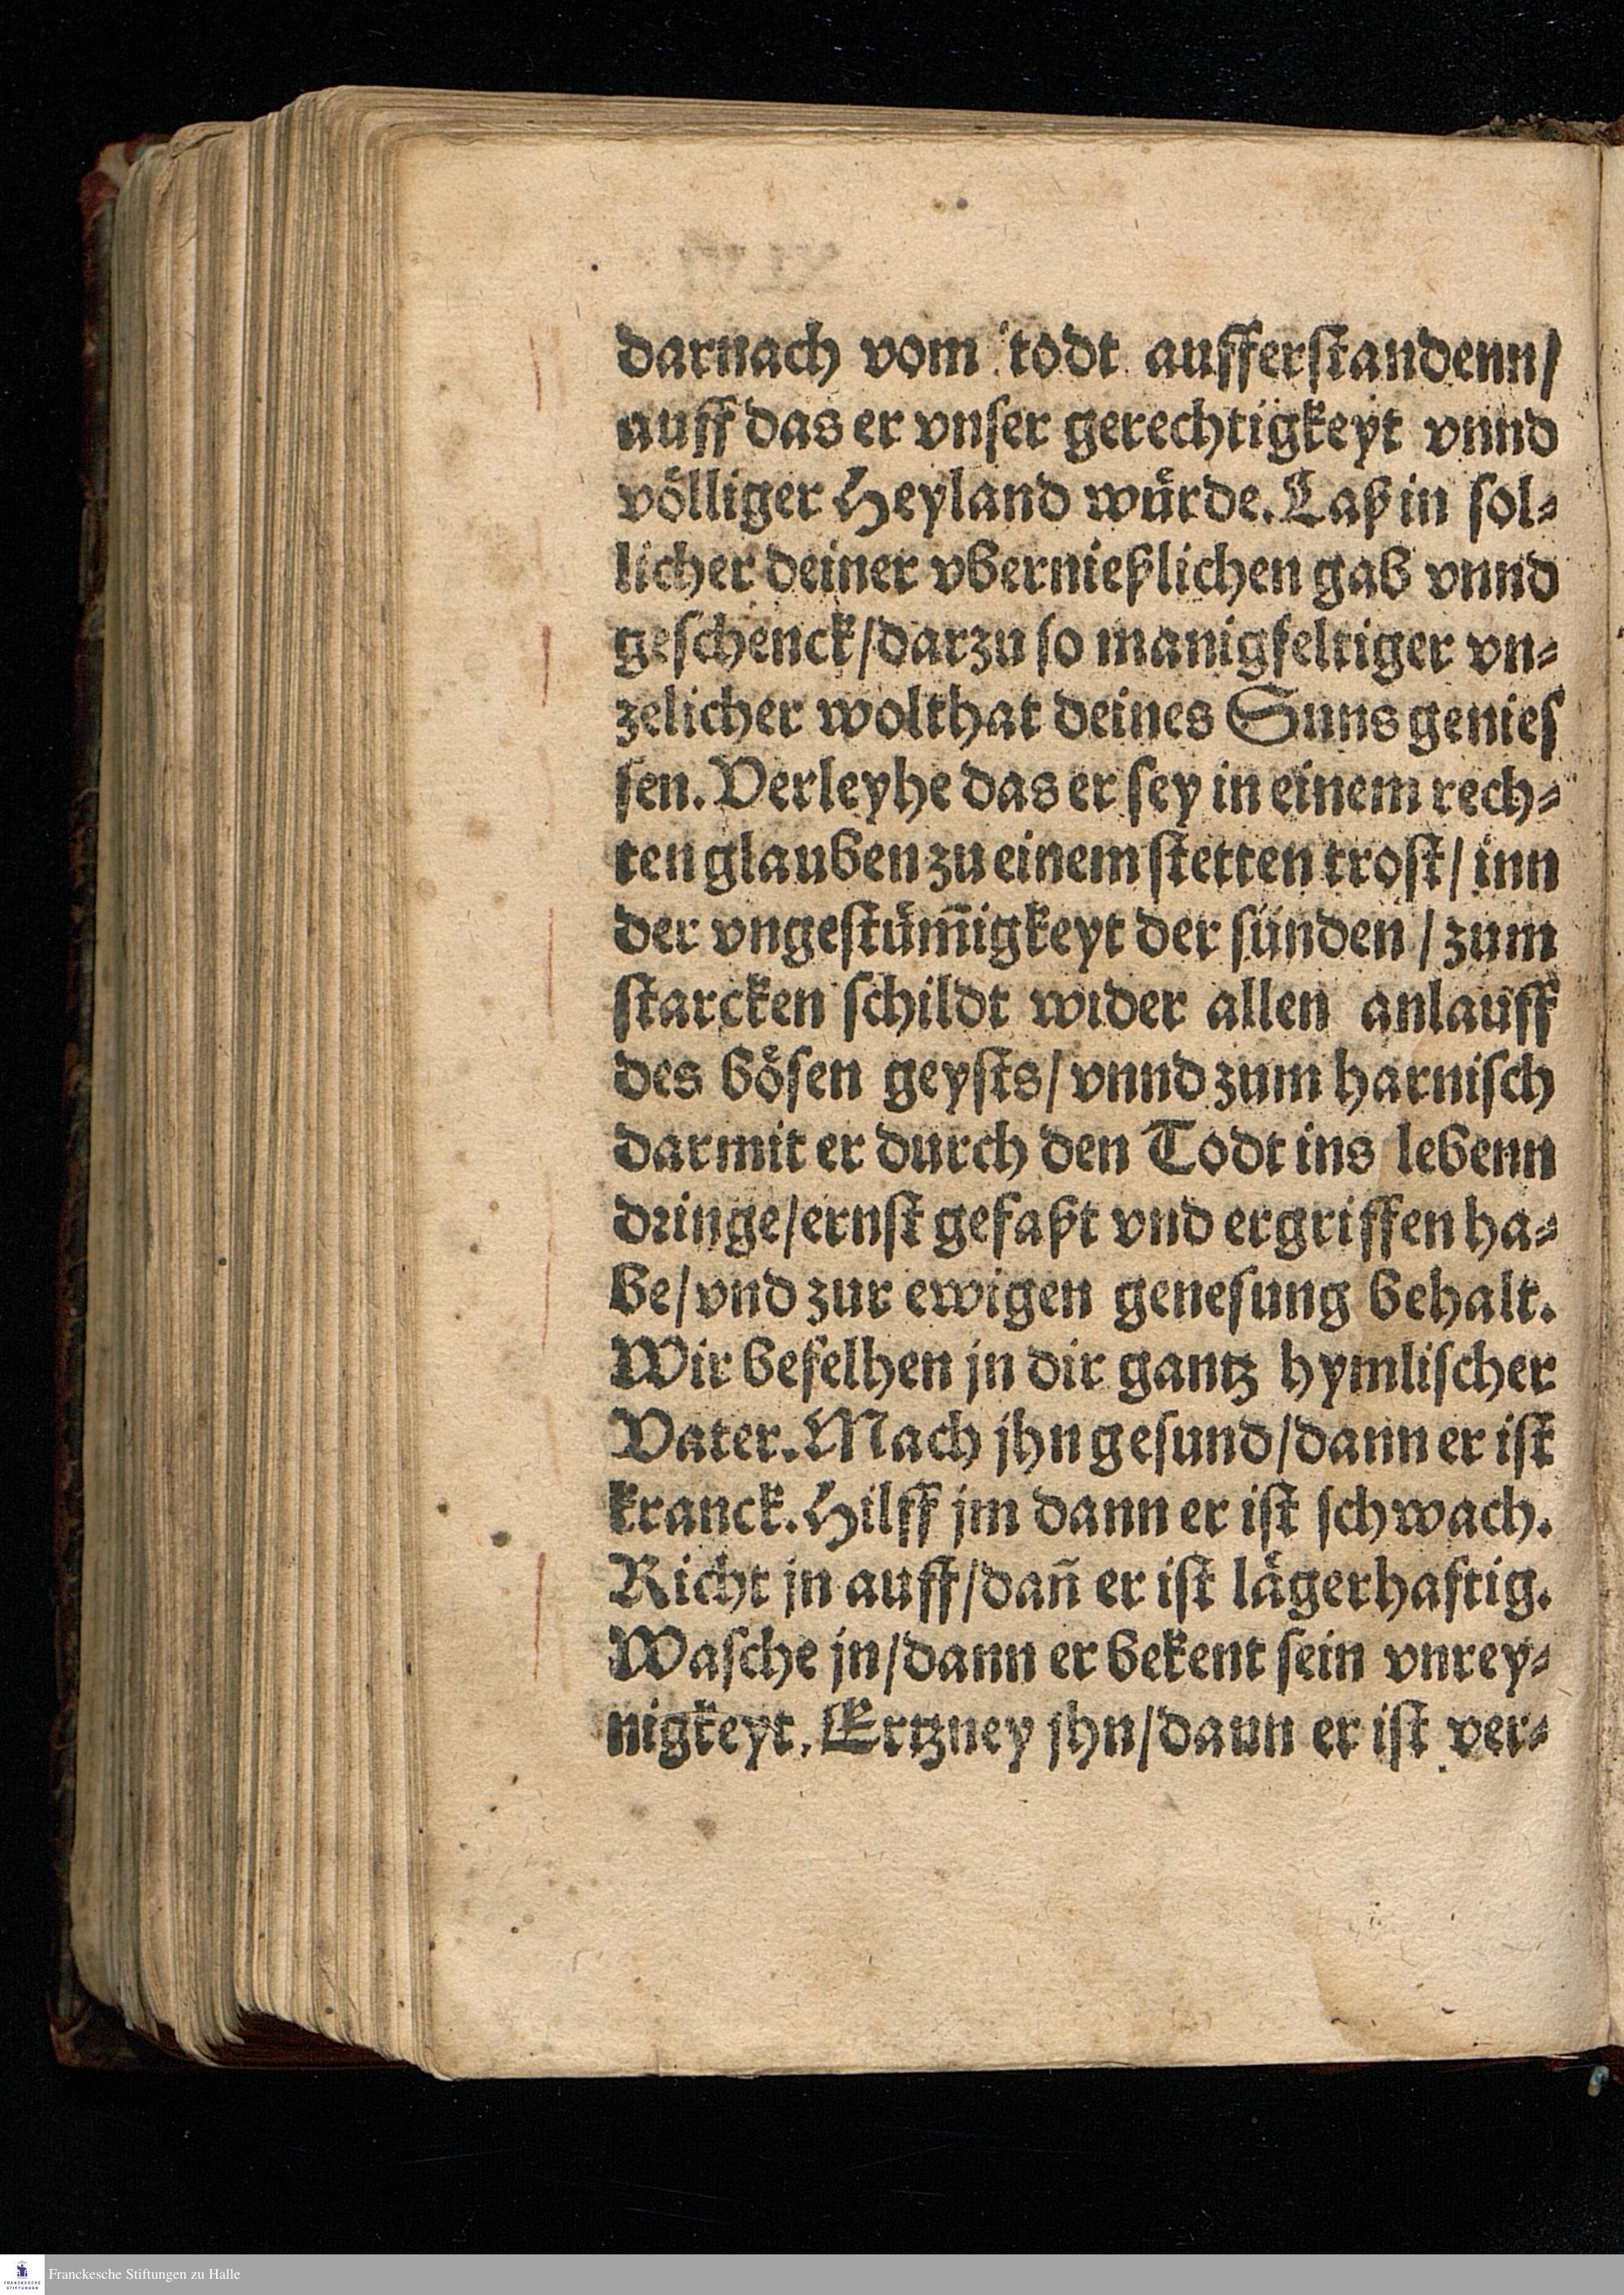 darnach vom todt aufferſtandenn/
auff das er vnſer gerechtigkeyt vnnd
voͤlliger Heyland wuͤrde. Laß in ſol⸗
licher deiner vbernießlichen gab vnnd
geſchenck/darzu ſo manigfeltiger vn⸗
zelicher wolthat deines Suns genieſ
ſen. Verleyhe das er ſey in einem rech⸗
ten glauben zu einem ſtetten troſt/ inn
der vngeſtuͤm̄igkeyt der ſünden / zum
ſtarcken ſchildt wider allen anlauff
des boͤſen geyſts/ vnnd zum harniſch
darmit er durch den Todt ins lebenn
dꝛinge/ernſt gefaßt vnd ergriffen ha⸗
be/vnd zur ewigen geneſung behalt.
Wir befelhen jn dir gantz hymliſcher
Vater. Mach jhn geſund/dann er iſt
kranck. Hilff jm dann er iſt ſchwach.
Richt jn auff/dan̄ er iſt laͤgerhaftig.
Waſche jn/dann er bekent ſein vnrey⸗
nigkeyt. Ertzney jhn/dann er iſt ver⸗
Franckesche Stiftungen zu Halle
FRANCKESCHE
STIFTUNGEN